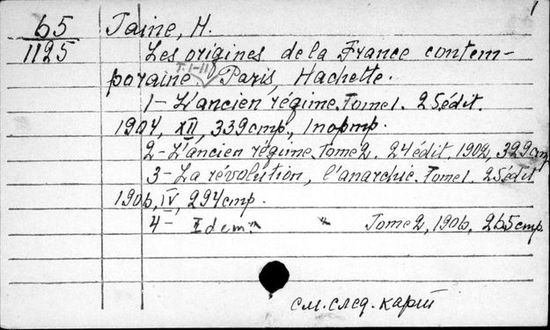 1
65 Taine, H.
1125 Les origines de la France contem-
T. I-II
poraine Paris, Hachette.
1- L'ancien régime. Tome 1. 25 édit.
1907, XII, 339 стр., 1 портр.
2- L'ancien régime. Tome 2. 24 édit. 1902, 329 стр
3- La révolution, l'anarchie. Tome 1. 25 édit
1906, IV, 294 стр.
4- Idem " Tome 2, 1906, 265 стр.
см. след. карт